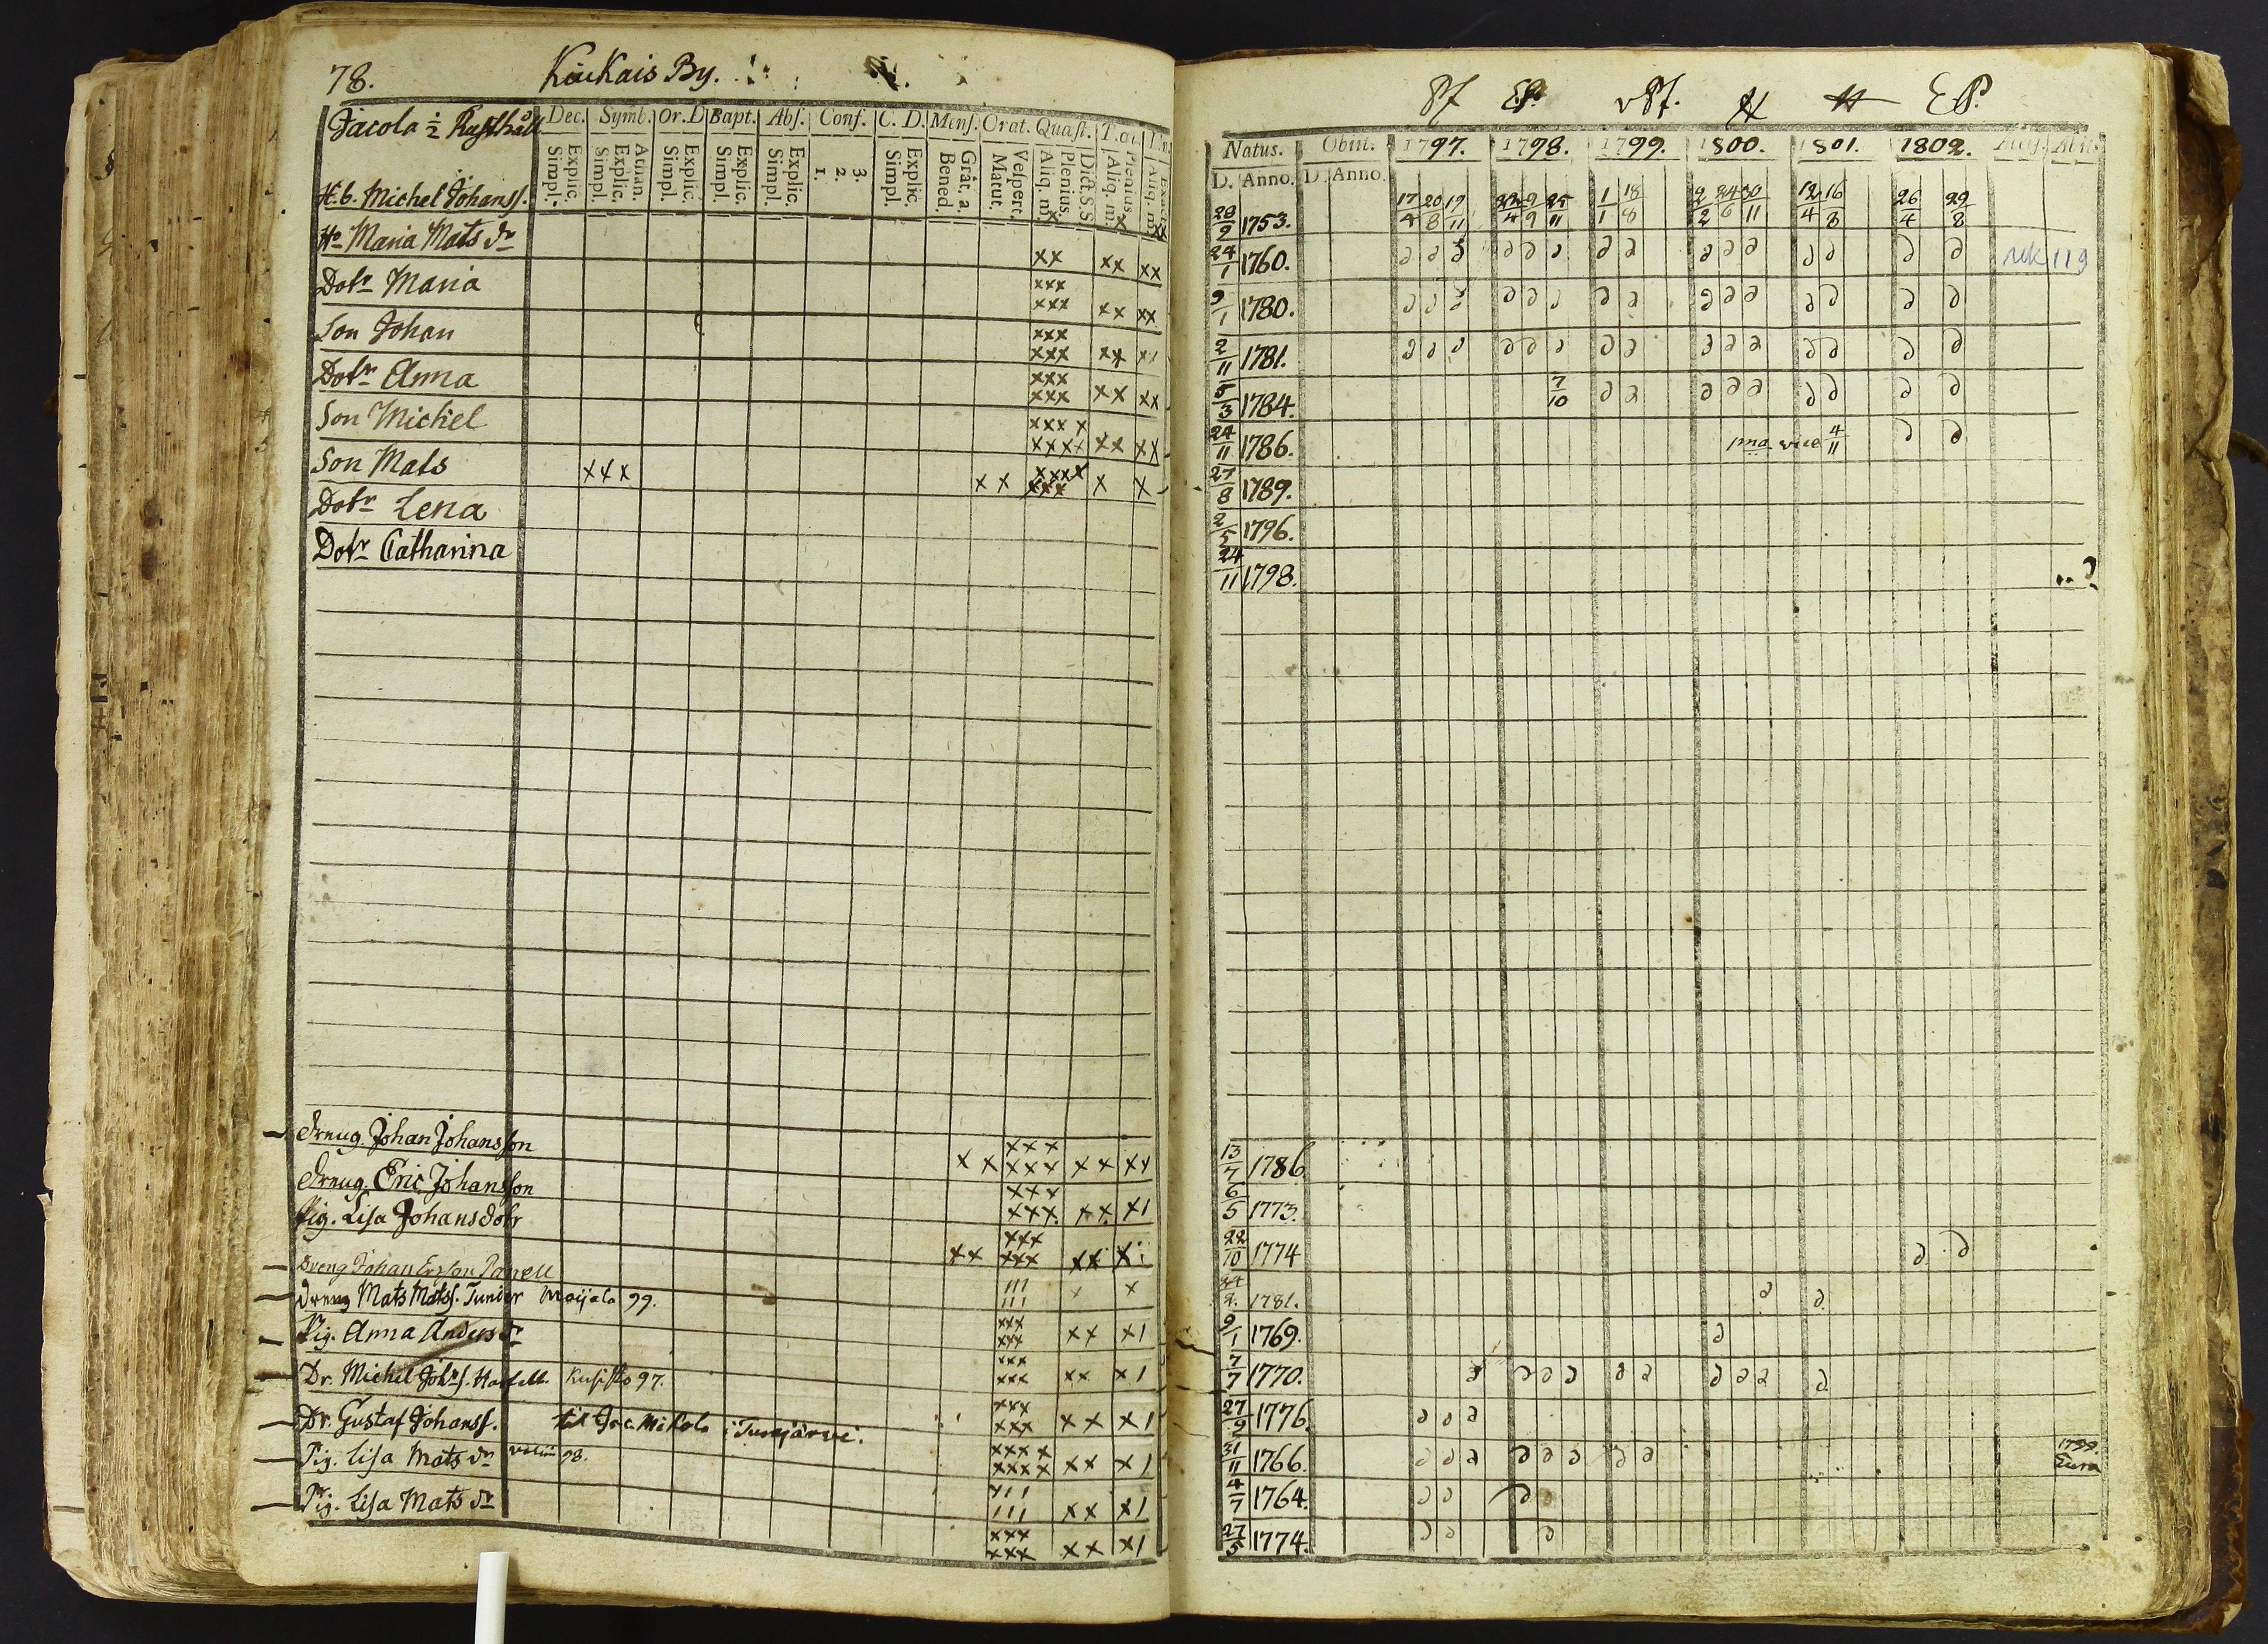 78. Kiukais By.
Jacola ½ Rusthåll Dec. Symb. Or. D Bapt. Abs. Conf. C. D. Mens. Orat. Quæst. T. œc.
Explic. Simpl. Athan. Explic. Simpl. Explic. Simpl. Explic. Simpl. Explic. Simpl. 3. 2. 1. Explic. Simpl. Grat. a. Bened. Vespert. Matut. Dict. S.S Plenius Aliq. m. Plenius Aliq. m. Aliq. m.
H. b. Michel Johanss. x x xx
Hu Maria Mats dr xx xx xx
Dotr Maria xxx xxx xx xx
Son Johan xxx xxx xx x/
Dotr Anna xxx xxx xx xx
Son Michel xxx x xxxx xx xx
Son Mats xxx x x xxxx xxx x x
Dotr Lena
Dotr Catharina
Dreng. Johan Johansson x x xxx xxx xx xx
Dreng. Eric Johansson xxx xxx xx x1
Pig. Lisa Johansdotr xx xxx xxx xx x
Dreng Johan Ersson
Dreng Mats Matss. Junior Maijala 99. xxx xxx xx x1
Pig. Anna Anders dr xxx xxx xx x1
Dr. Michel Johs. Kusisto 97. xxx xxx xx x1
Dr. Gustaf Johanss. til Jac. Mikola i Turajärvi. xxxx xxxx xx x1
Pig. Lisa Mats dr 98. 111 111 xx x1
Pig. Lisa Mats dr xxx xxx xx x1
Pf EP. vPf. EP.
Natus. Obiit. 1797. 1798. 1799. 1800. 1801. 1802.
D. Anno. D. Anno.
28/9 1753. 17/4 20/8 19/11 9/9 25/11 1/1 18/8 2/2 24/6 30/11 12/4 16/8 26/4 29/8
24/1 1760. 119
9/1 1780.
2/11 1781.
5/3 1784. 7/10
24/11 1786. pma vice 4/11
27/8 1789.
2/5 1796.
24/11 1798.
13/7 1786
6/5 1773.
22/10 1774
24/2. 1781.
9/1 1769.
7/7 1770.
27/9 1776.
31/11 1766. 1799. Eura
4/7 1764.
27/5 1774.